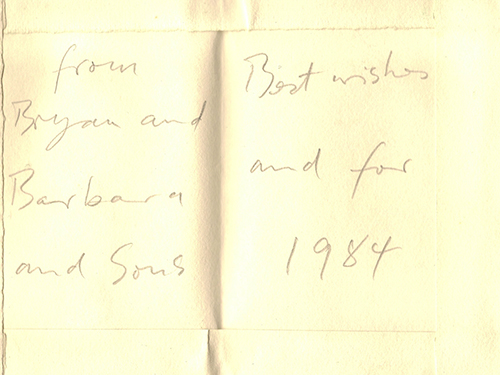 from
Bryan and
Barbara
and Sons
Best wishes
and for
1984